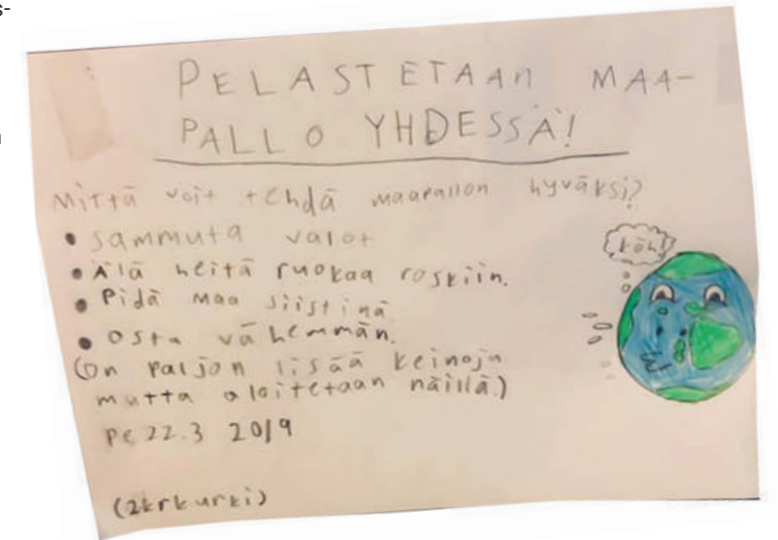 PELASTETAAN MAA-
PALLO YHDESSÄ!
Mittä voit tehdä maapallon hyväksi?
• Sammuta valot
• Älä heitä ruokaa roskiin.
• Pidä maa siistinä.
• Osta vähemmän.
(On paljon lisää keinoja
mutta aloitetaan näillä.)
Pe 22.3 2019
(2krkurki)
köh!